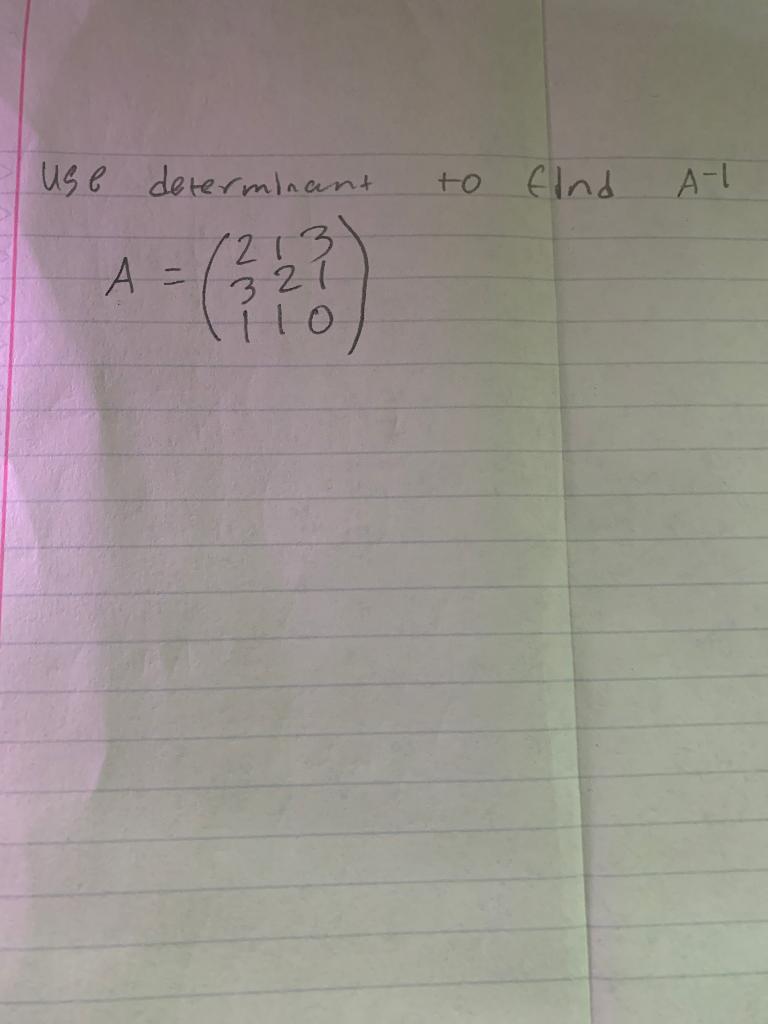 use determinant to find A⁻¹
A = (2 1 3
3 2 1
1 1 0)